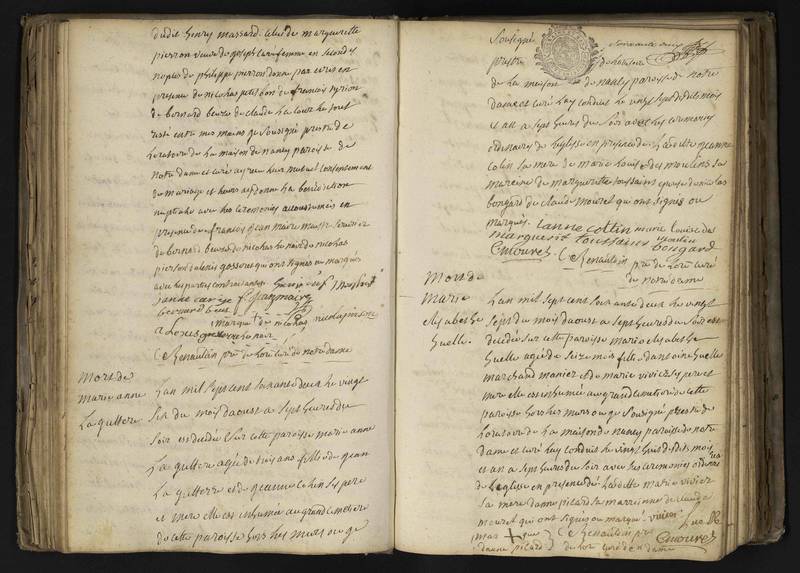 dudit henry massard celui de marguerite
pierron veuve de joseph sa femme en secondes
nopces de philippe pierron donné par ecrit en
presence de nicolas petit bon de francois
de bernard de claude le tout
resté entre mes mains je soussigné prestre de
loratoire de la maison de nancy paroisse de
notre dame et curé ay receu leur mutuel consentement
de mariage et leurs ay donné la benediction
nuptiale avec les ceremonies accoustumées en
presence de francois jean maire
de bernard de nicolas le noir de nicolas
pierson qui ont signés ou marqués
avec les parties contractantes
jeanne
bernard
marque + de nicolas nicola pierson
a Louis le noir
C Renaulin ptre de lore curé de notre dame
Mort de
marie anne
Laguttere
Lan mil sept cent soixante deux le vingt
six du mois daoust a sept heures du
soir est decedée sur cette paroisse marie anne
Laguttere agée de trois ans fille de jean
Laguttere et de jeanne Colin ses pere
et mere elle est inhumée au grand cimetiere
de cette paroisse hors les murs ou je
soussigné
prestre de loratoire
de la maison de nancy paroisse de notre
dame et curé lay conduit le vingt sept desdits mois
et an a sept heures du soir avec les ceremonies
ordinaires de leglise en presence de ladite jeanne
Colin sa mere de marie louise des moulins sa
mareine de marguerite toussaint epouse de nicolas
bougard de claude mouret qui ont signés ou
marqués. Janne Collin marie Louise des
marguerit toussains moulin
Cmouret bougard
C Renaulin ptre de lore curé
de notre dame
Mort de
Marie
elisabethe
Guelle.
Lan mil sept cent soixante deux le vingt
sept du mois daoust a sept heures du soir est
decedée sur cette paroisse marie elisabethe
Guelle agée de seize mois fille dantoine Guelle
marchand manier et de marie vivier ses pere et
mere elle est inhumée au grand cimetiere de cette
paroisse hors les murs ou je soussigné prestre de
loratoire de la maison de nancy paroisse de notre
dame et curé lay conduit le vingt huit desdits mois
et an a sept heures du soir avec les ceremonies ordinaires
de leglise en presence de ladite marie vivier
sa mere danne picard sa marrienne de claude
mouret qui ont signés ou marqué vivier
mar + que C Renaulin ptre
danne picard de lore curé de n dame Cmouret